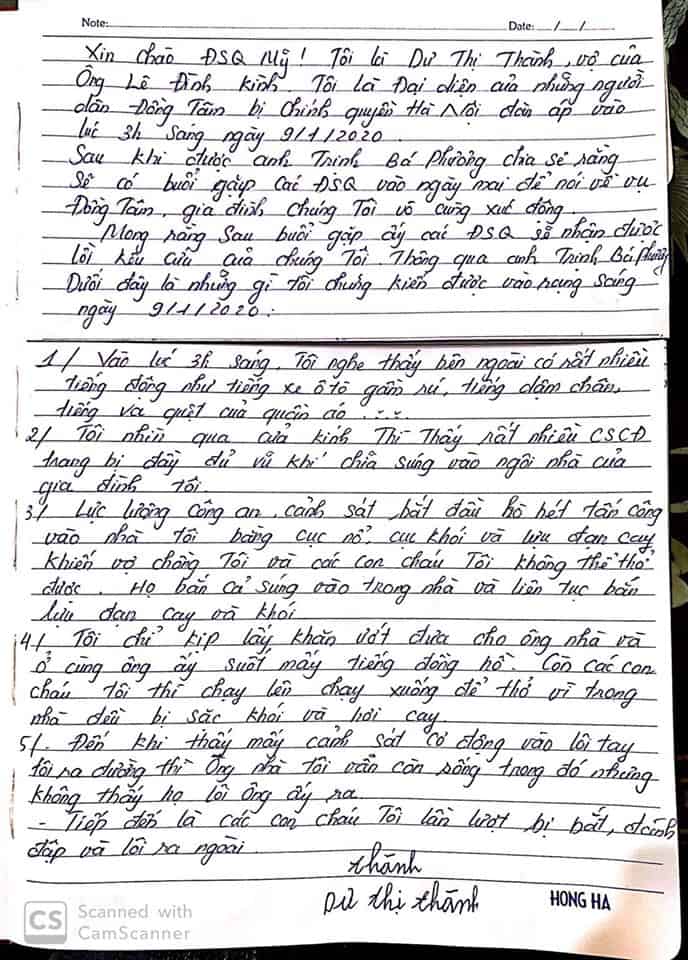 Note:
Date: / /
Xin chào ĐSQ Mỹ! Tôi là Dư Thị Thành, vợ của
Ông Lê Đình Kình. Tôi là Đại diện của những người
dân Đồng Tâm bị Chính quyền Hà Nội đàn áp vào
lúc 3h sáng ngày 9/1/2020.
Sau khi được anh Trịnh Bá Phương chia sẻ rằng
Sẽ có buổi gặp các ĐSQ vào ngày mai để nói về vụ
Đồng Tâm, gia đình chúng Tôi vô cùng xúc động.
Mong rằng Sau buổi gặp ấy các ĐSQ sẽ nhận được
lời kêu cứu của chúng Tôi Thông qua anh Trịnh Bá Phương
Dưới đây là những gì tôi chứng kiến được vào rạng sáng
ngày 9/1/2020:
1/ Vào lúc 3h sáng. Tôi nghe thấy bên ngoài có rất nhiều
tiếng động như tiếng xe ô tô gầm rú, tiếng dậm chân,
tiếng va quệt của quần áo .....
2/ Tôi nhìn qua cửa kính Thì Thấy rất nhiều CSCĐ
trang bị đầy đủ vũ khí chĩa súng vào ngôi nhà của
gia đình tôi
3/ Lực lượng công an, cảnh sát bắt đầu hò hét tấn công
vào nhà tôi bằng cục nổ, cục khói và lựu đạn cay
khiến vợ chồng Tôi và các con cháu Tôi không thể thở
được. Họ bắn cả súng vào trong nhà và liên tục bắn
lựu đạn cay và khói
4/ Tôi chỉ kịp lấy khăn ướt đưa cho ông nhà và
ở cùng ông ấy suốt mấy tiếng đồng hồ. Còn các con
cháu tôi thì chạy lên chạy xuống để thở vì trong
nhà đều bị sặc khói và hơi cay.
5/. Đến khi thấy mấy cảnh sát cơ động vào lôi tay
tôi ra đường thì Ông nhà tôi vẫn còn sống trong đó nhưng
không thấy họ lôi ông ấy ra.
- Tiếp đến là các con cháu Tôi lần lượt bị bắt, đánh
đập và lôi ra ngoài.
thành
Dư thị thành
HONG HA
CS Scanned with
CamScanner